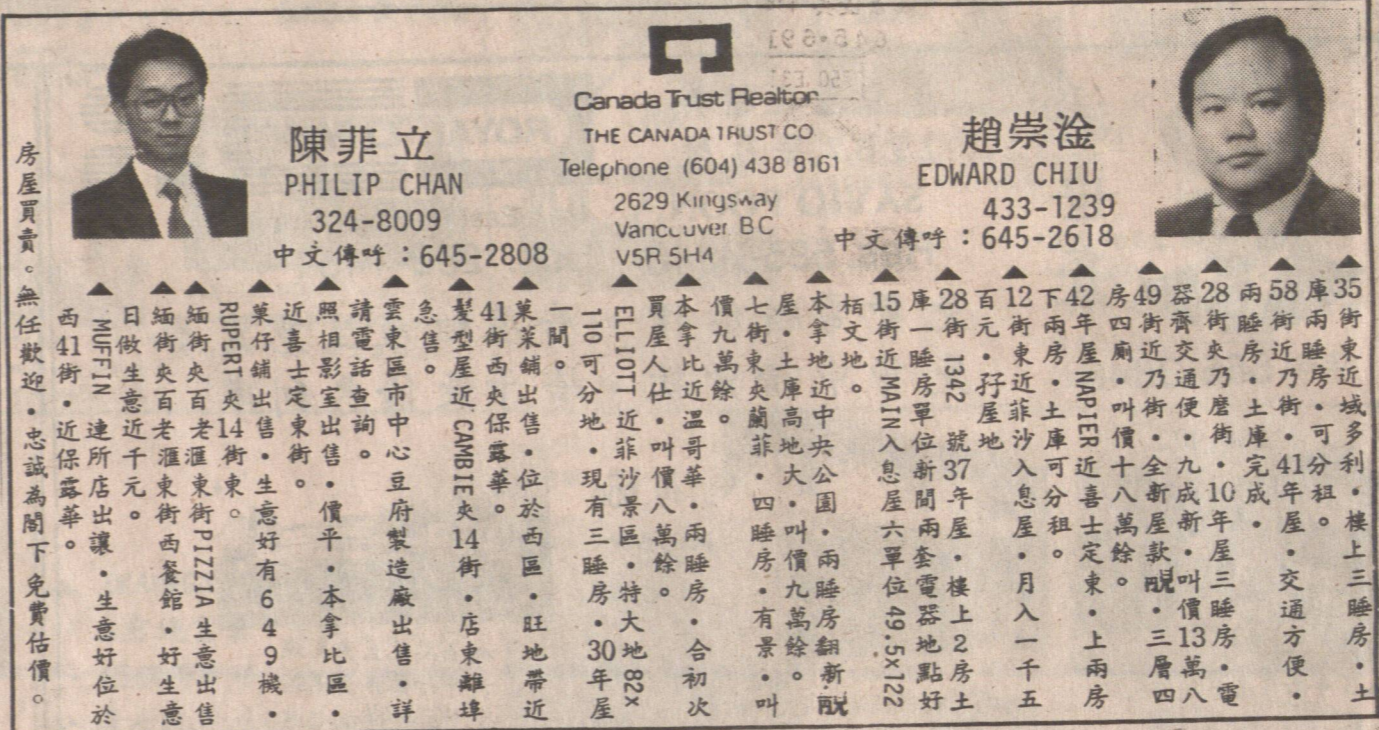 Canada Trust Realtor
THE CANADA TRUST CO
Telephone (604) 438 8161
2629 Kingsway
Vancouver BC
V5R 5H4
陳菲立
PHILIP CHAN
324-8009
中文傳呼：645-2808
趙崇淦
EDWARD CHIU
433-1239
中文傳呼：645-2618
▲35街東近域多利・樓上三睡房・土
庫兩睡房・可分租。
▲58街近乃街・41年屋・交通方便・
兩睡房・土庫完成・
▲28街夾乃磨街・10年屋三睡房・電
器齊交通便・九成新・叫價13萬八
▲49街近乃街・全新屋款靚・三層四
房四廁・叫價十八萬餘。
▲42年屋NAPIER近喜士定東・上兩房
下兩房・土庫可分租。
▲12街東近菲沙入息屋・月入一千五
百元・孖屋地
▲28街 1342 號37年屋・樓上2房土
庫一睡房單位新間兩套電器地點好
▲15街近MAIN入息屋六單位49.5x122
栢文地。
▲本拿地近中央公園・兩睡房翻新・靚
屋・土庫高地大・叫價九萬餘。
▲七街東夾蘭菲・四睡房・有景・叫
價九萬餘。
▲本拿比近溫哥華・兩睡房・合初次
買屋人仕・叫價八萬餘。
▲ELLIOTT 近菲沙景區・特大地82x
110可分地・現有三睡房・30年屋
一間。
▲菓菜鋪出售・位於西區・旺地帶近
41街西夾保露華。
▲髮型屋近CAMBIE夾14街・店東離埠
急售。
▲雲東區市中心豆府製造廠出售・詳
請電話查詢。
▲照相影室出售・價平・本拿比區・
近喜士定東街。
▲菓仔鋪出售・生意好有649機・
RUPERT 夾14街東。
▲緬街夾百老滙東街PIZZIA生意出售
▲緬街夾百老滙東街西餐館・好生意
日做生意近千元。
▲MUFFIN 連所店出讓・生意好位於
西41街・近保露華。
房屋買賣。無任歡迎・忠誠為閣下免費估價。